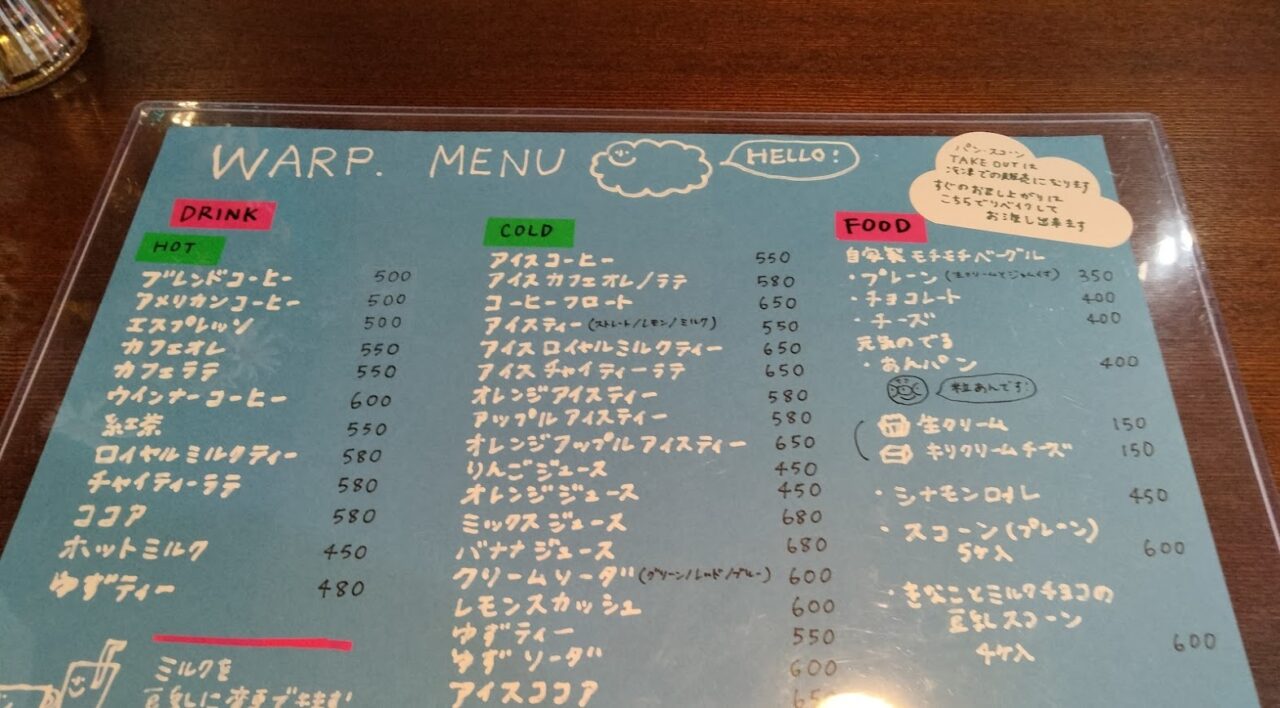 WARP. MENU
HELLO!
パン・スコーン
TAKE OUTは
冷凍での販売になります
すぐのお召し上がりは
こちらでリベイクして
お渡し出来ます
DRINK
HOT
ブレンドコーヒー 500
アメリカンコーヒー 500
エスプレッソ 500
カフェオレ 550
カフェラテ 550
ウインナーコーヒー 600
紅茶 550
ロイヤルミルクティー 580
チャイティーラテ 580
ココア 580
ホットミルク 450
ゆずティー 480
ミルクを
豆乳に変更できます
COLD
アイスコーヒー 550
アイスカフェオレ/ラテ 580
コーヒーフロート 650
アイスティー(ストレート/レモン/ミルク) 550
アイスロイヤルミルクティー 650
アイスチャイティーラテ 650
オレンジアイスティー 580
アップルアイスティー 580
オレンジアップルアイスティー 650
りんごジュース 450
オレンジジュース 450
ミックスジュース 680
バナナジュース 680
クリームソーダ(グリーン/レッド/ブルー) 600
レモンスカッシュ 600
ゆずティー 550
ゆずソーダ 600
アイスココア 650
FOOD
自家製モチモチベーグル
・プレーン(生クリームとジャム付き) 350
・チョコレート 400
・チーズ 400
元気のでる
・あんパン 400
粒あんです!
生クリーム 150
キリクリームチーズ 150
・シナモンロール 450
・スコーン(プレーン)
5ケ入 600
・きなことミルクチョコの
豆乳スコーン
4ケ入 600